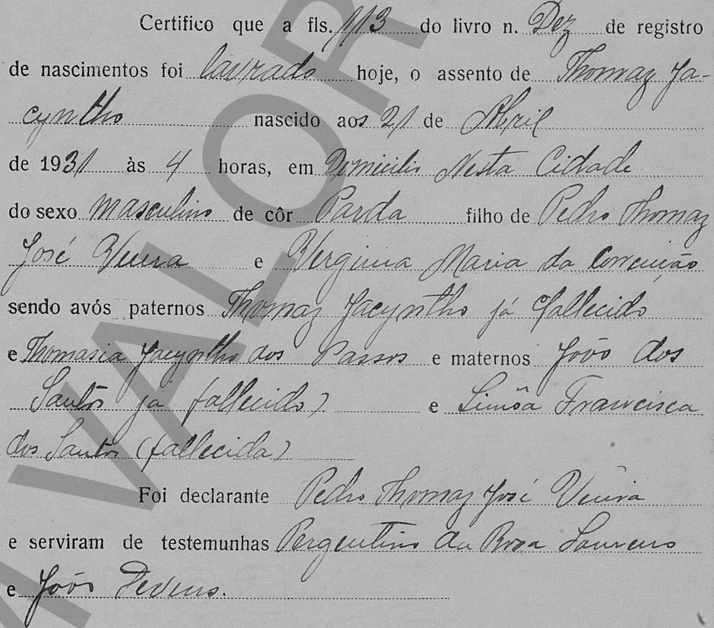 Certifico que a fls. 113 do livro n. Dez de registro
de nascimentos foi lavrado hoje, o assento de Thomaz Ja-
cyntho nascido aos 21 de Abril
de 1931 às 4 horas, em Domicilio Nesta Cidade
do sexo masculino de côr Parda filho de Pedro Thomaz
José Vieira e Verginia Maria da Conceição
sendo avós paternos Thomaz Jacyntho já fallecido
e Thomasia Jacyntho dos Passos e maternos João dos
Santos já fallecido) e Simôa Francisca
dos Santos (fallecida)
Foi declarante Pedro Thomaz José Vieira
e serviram de testemunhas Pergentino da Rosa Loureiro
e João
VALOR